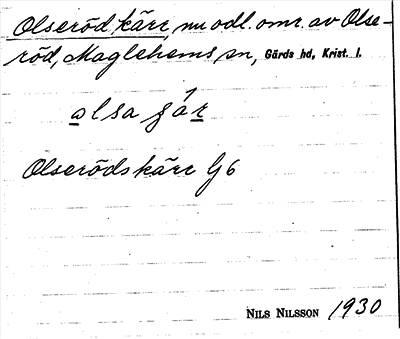 Olseröd kärr, nu odl. omr. av Olse-
röd, Maglehems sn, Gärds hd, Krist. l.
Olserödskärr G6
NILS NILSSON 1930